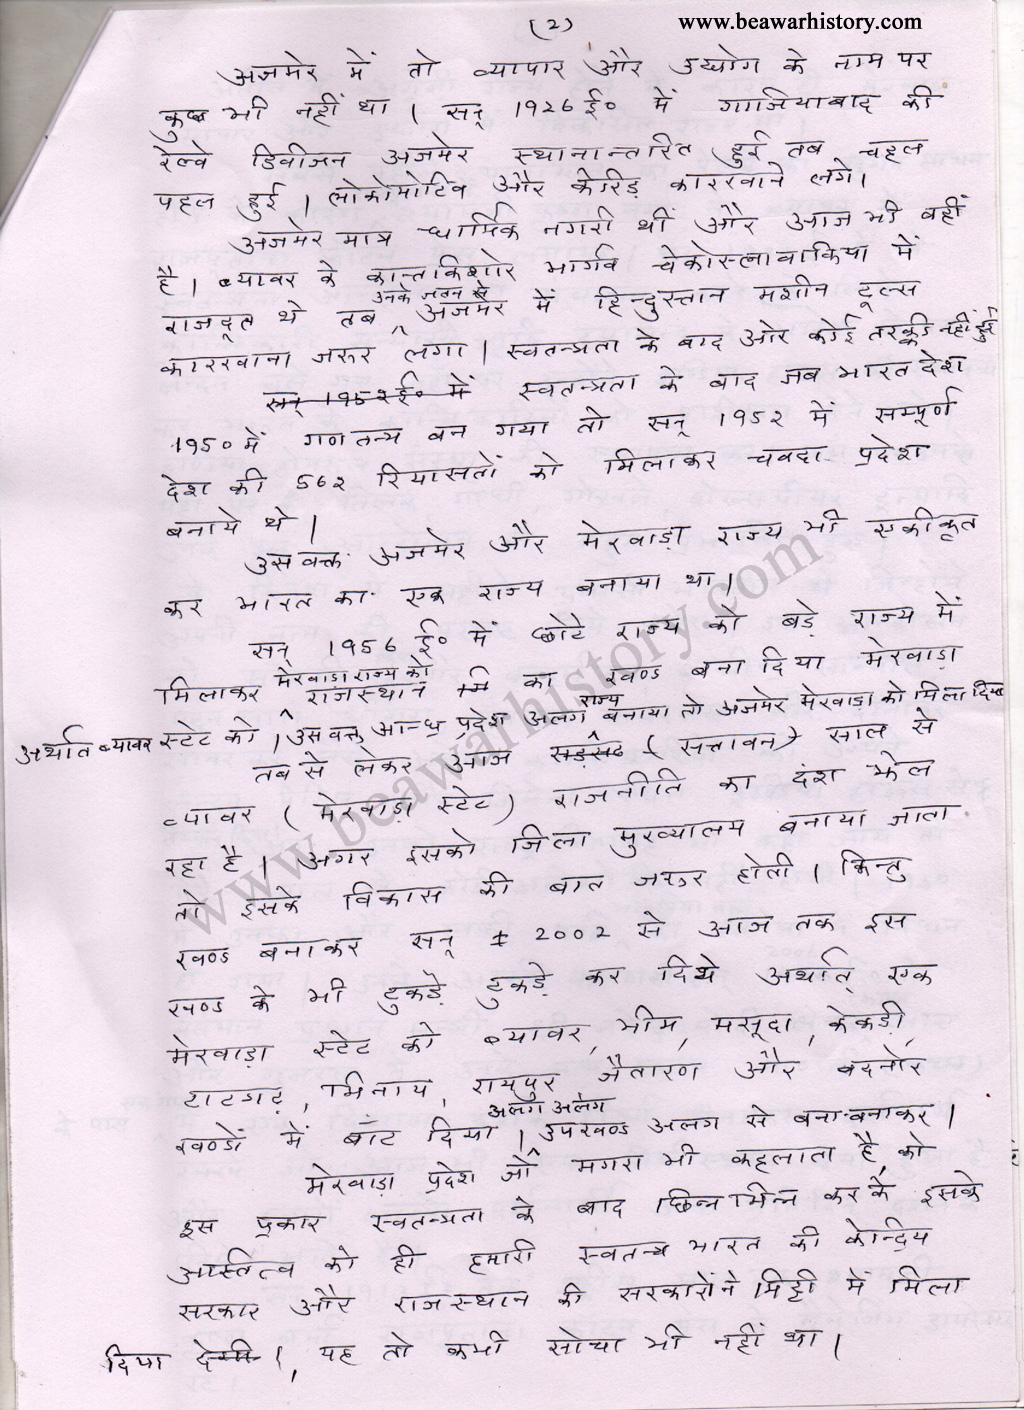 www.beawarhistory.com
(2)
अजमेर में तो व्यापार और उद्योग के नाम पर
कुछ भी नहीं था । सन् 1926 ई० में गाजियाबाद की
रेल्वे डिवीजन अजमेर स्थानान्तरित हुई तब चहल
पहल हुई । लोकोमोटिव और केरिज कारखाने लगे।
अजमेर मात्र धार्मिक नगरी थी और आज भी वहीं
है । ब्यावर के कान्तकिशोर भार्गव चेकोस्लावाकिया में
राजदूत थे तब उनके जतन से अजमेर में हिन्दुस्तान मशीन टूल्स
कारखाना जरुर लगा । स्वतन्त्रता के बाद और कोई तरक्की नहीं हुई
सन् 1952 ई० में स्वतन्त्रता के बाद जब भारत देश
1950 में गणतन्त्र बन गया तो सन् 1952 में सम्पूर्ण
देश की 562 रियासतों को मिलाकर चवदा प्रदेश
बनाये थे ।
उस वक्त अजमेर और मेरवाड़ा राज्य भी एकीकृत
कर भारत का एक राज्य बनाया था।
सन् 1956 ई० में छोटे राज्य को बड़े राज्य में
मिलाकर मेरवाड़ा राज्य को राजस्थान का खण्ड बना दिया मेरवाड़ा
अर्थात ब्यावर स्टेट को । उस वक्त आन्ध्र प्रदेश अलग राज्य बनाया तो अजमेर मेरवाड़ा को मिला दिया
तब से लेकर आज (सत्तावन) साल से
ब्यावर (मेरवाड़ा स्टेट) राजनीति का दंश झेल
रहा है । अगर इसको जिला मुख्यालय बनाया जाता
तो इसके विकास की बात जरुर होती । किन्तु
खण्ड बनाकर सन् 2002 से आज तक इस
खण्ड के भी टुकड़े टुकड़े कर दिये अर्थात् एक
मेरवाड़ा स्टेट को ब्यावर, भीम, मसूदा, केकड़ी,
टाटगढ़, भिनाय, रायपुर जैतारण और बदनोर
खण्डों में बाट दिया । अलग अलग उपखण्ड अलग से बना-बनाकर ।
मेरवाड़ा प्रदेश जो मगरा भी कहलाता है, को
इस प्रकार स्वतन्त्रता के बाद छिन्न भिन्न कर के इसके
अस्तित्व को ही हमारी स्वतन्त्र भारत की केन्द्रिय
सरकार और राजस्थान की सरकारों ने मिट्टी में मिला
दिया ।, यह तो कभी सोचा भी नहीं था ।
www.beawarhistory.com